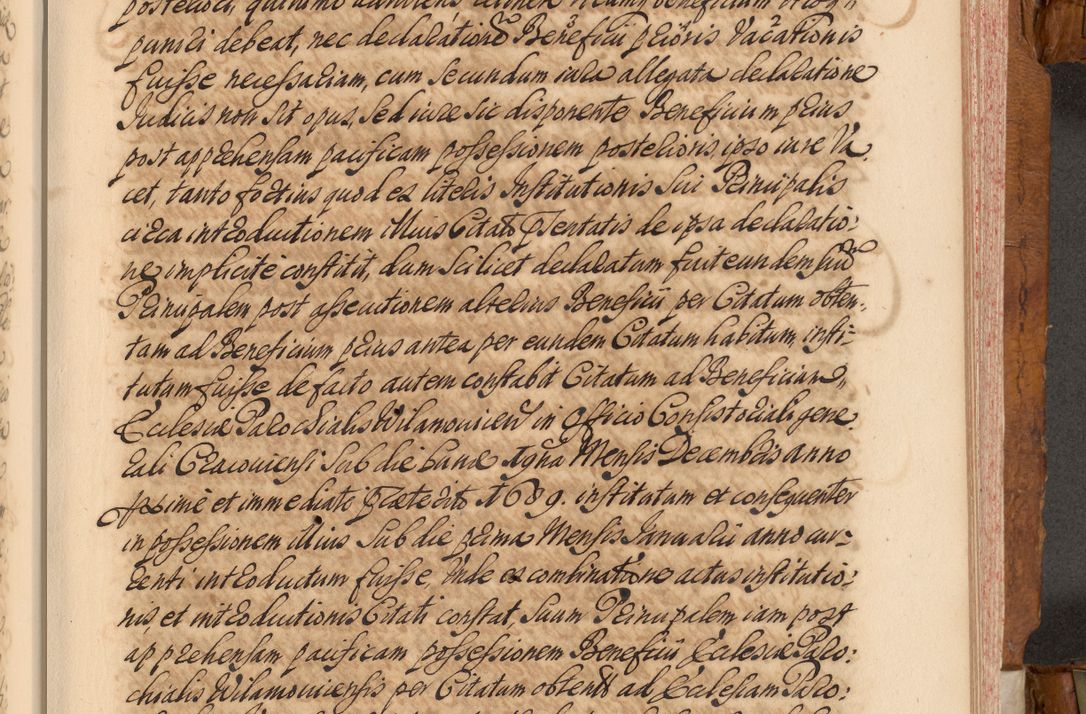 punici debeat, nec declarationẽ Beneficii prioris Vacationis
fuisse necessariam, cum secundum iura allegata declaratione
Iudicis non sit opus, sed iure sic disponente Beneficium prius
post apprehensam pacificam possessionem posterioris, ipso iure Va-
cet, tanto fortius quod ex literis Institutionis sui Principalis
circa introductionem illius Citato pręsentatis de ipsa declaratio:
ne implicite constitit, dum scilicet declaratum fuit eundem suũ
Principalem post assecutionem alterius Beneficii per Citatum obten-
tam ad Beneficium prius antea per eundem Citatum habitum, insti:
tutam fuisse, de facto autem constabit Citatum ad Beneficium
Ecclesiæ Parochialis Wilamovicen in Officio Consistoriali gene
rali Cracoviensi sub die Mensis Decembris anno
proxime et immediate præterito 1689. institutum et consequenter
in possessionem illius sub die prima Mensis Ianuarii anno cur:
renti introductum fuisse, Unde ex combinatione actus institutio:
nis, et introductionis Citati constat, suum Principalem iam post
apprehensam pacificam possessionem Beneficii Ecclesiæ Paro:
chialis Wilamoviciensis per Citatum obtenti ad Ecclesiam Paro: